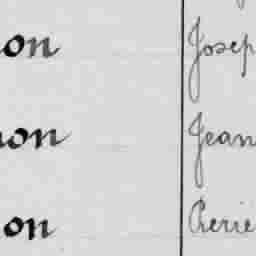 on Josep
on Jean
on Cerie